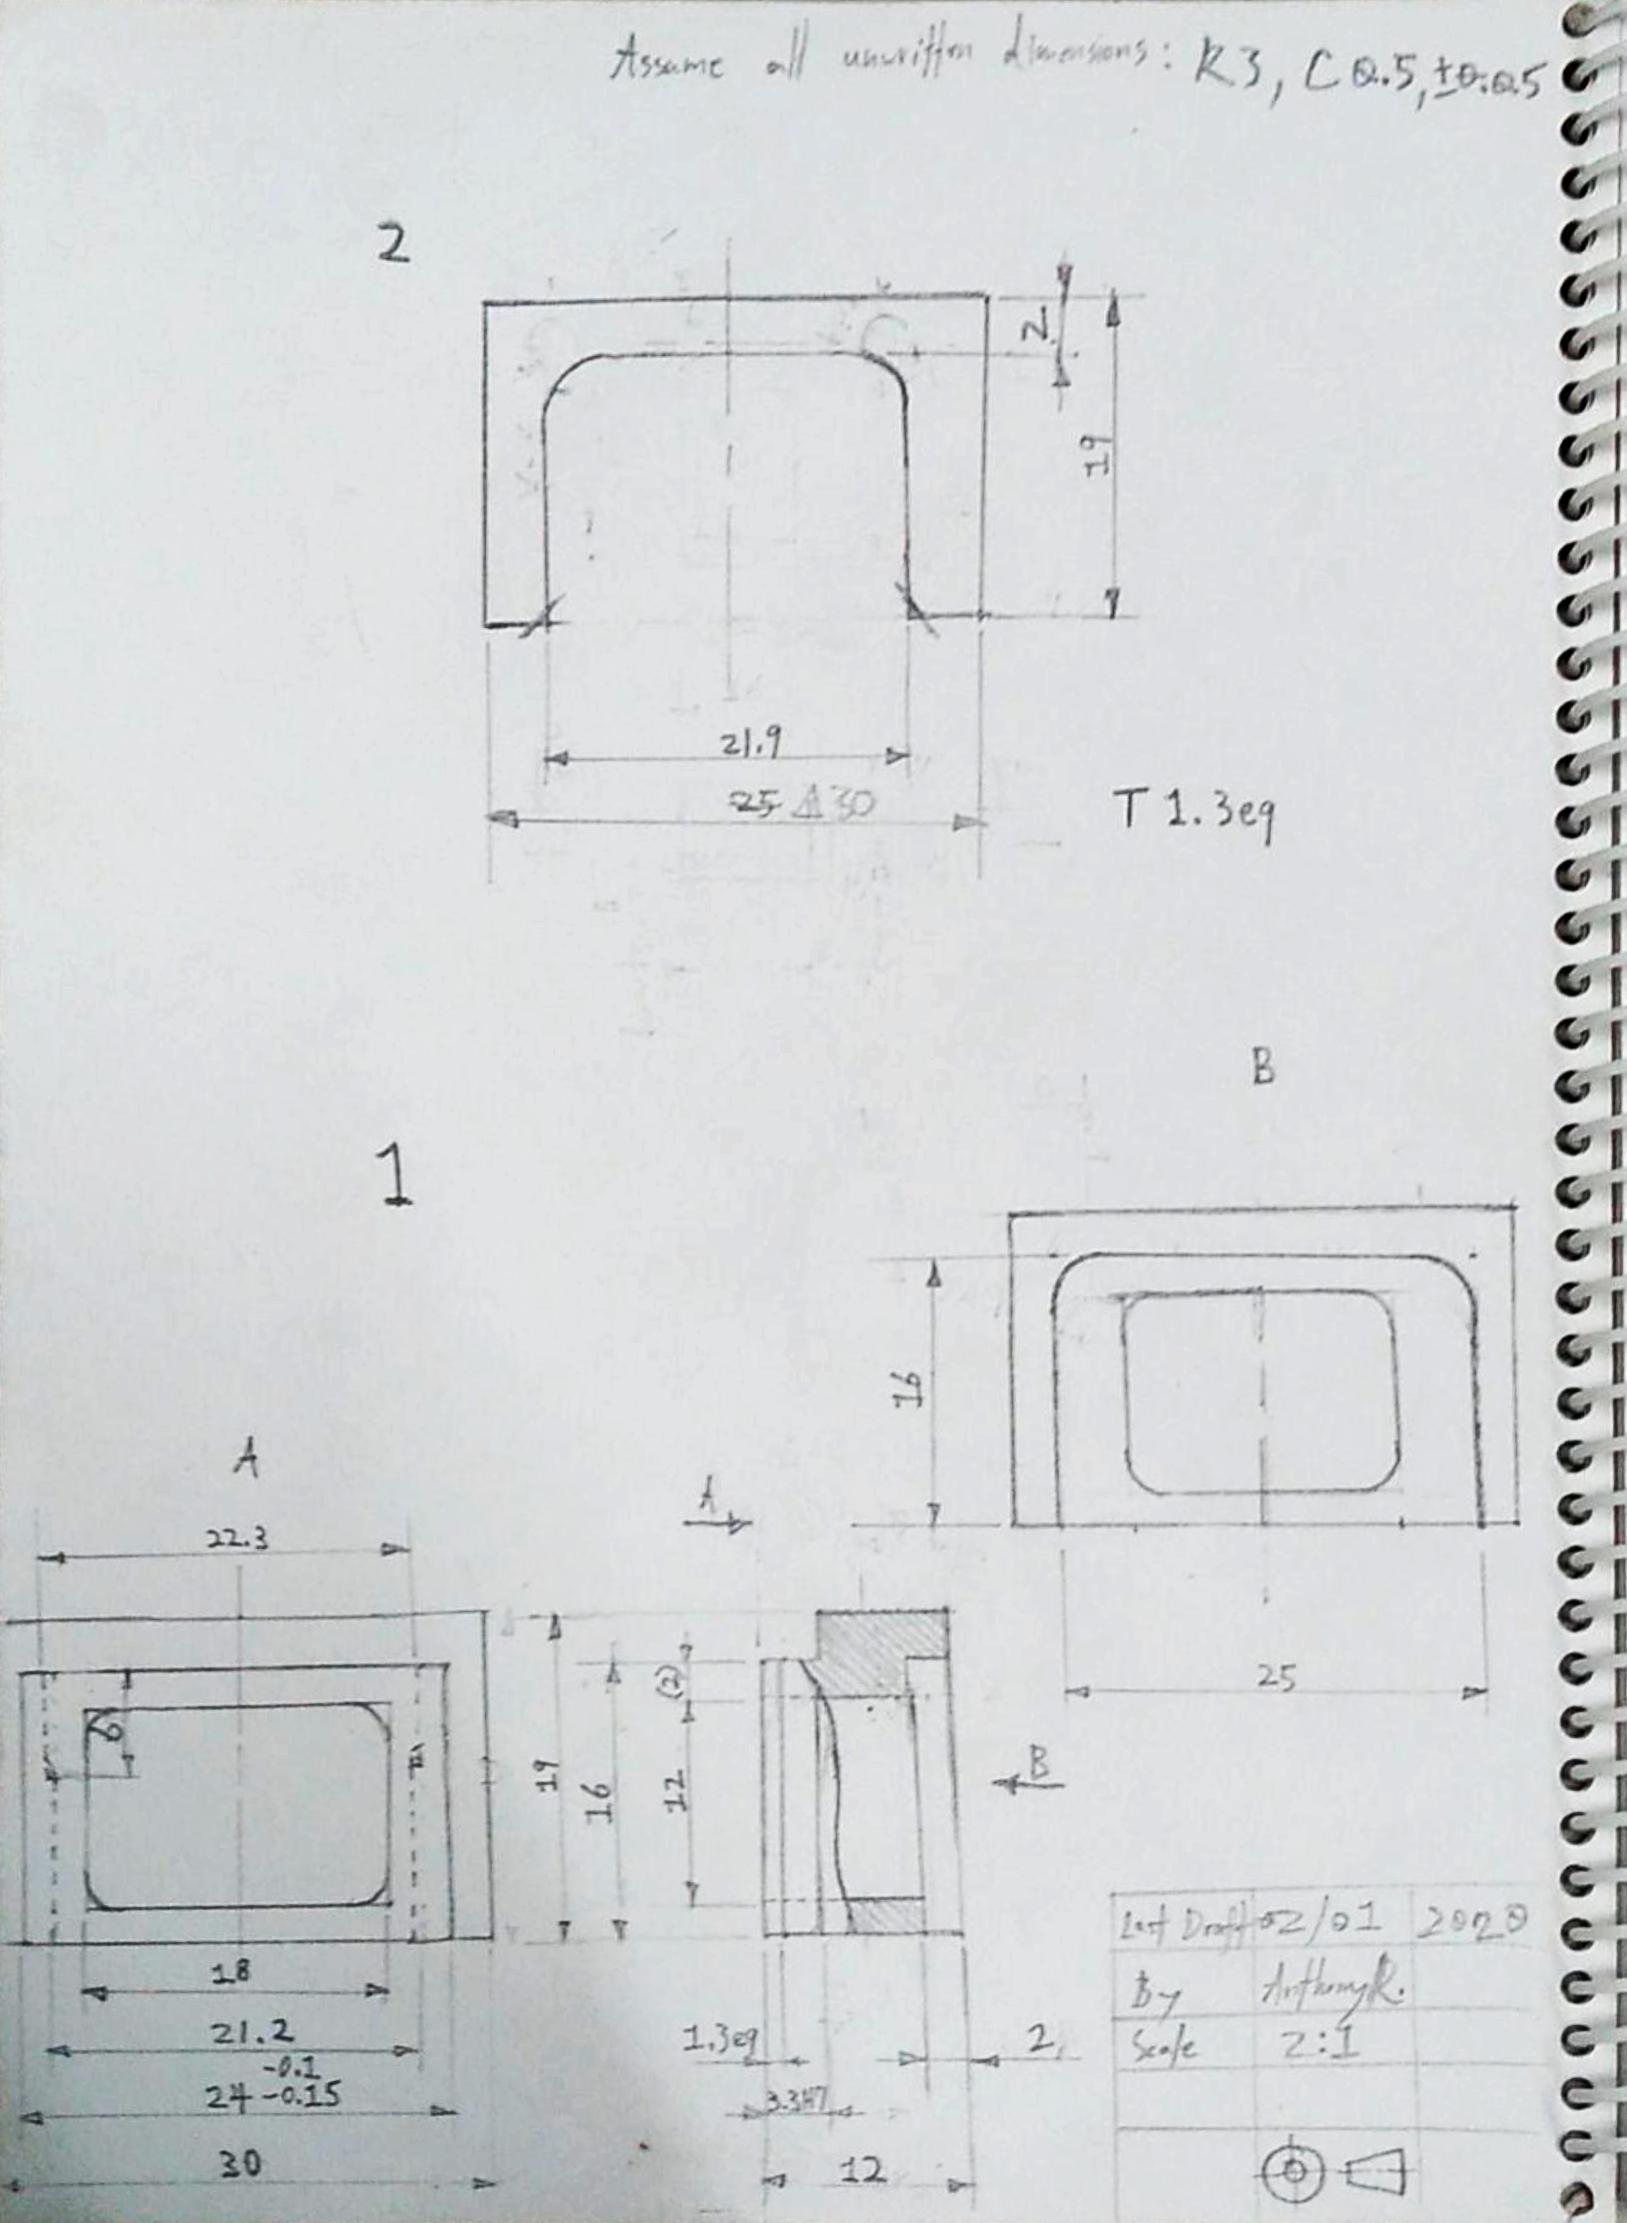 Assume all unwritten dimensions: R3, C0.5, ±0.05
2
2
19
21.9
25 ⚠30
T 1.3eq
B
1
16
A
A
22.3
25
(2)
6
19
16
12
B
18
21.2
24 -0.1 -0.15
30
1.3eq
2
3.3H7
12
Last Draft 02/01 2020
By Anthony R.
Scale 2:1